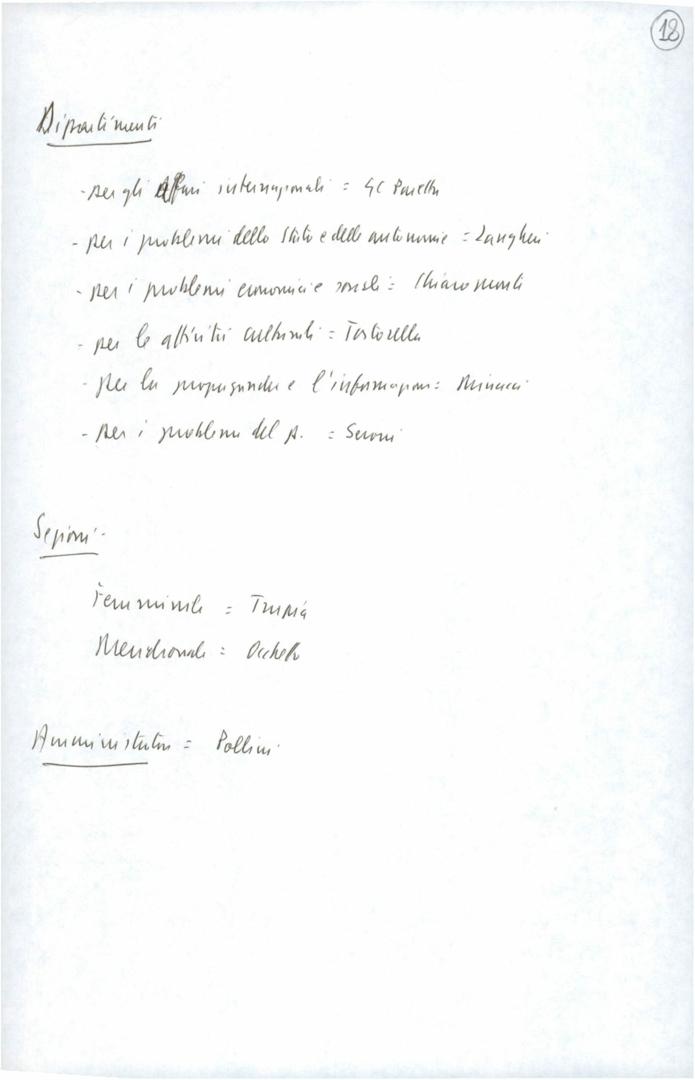 18
Dipartimenti
- per gli Affari internazionali = GC Pajetta
- per i problemi dello Stato e delle autonomie = Zangheri
- per i problemi economici e sociali = Chiaromonte
- per le attività culturali = Tortorella
- per la propaganda e l'informazione = Minucci
- per i problemi del p. = Seroni
Sezioni
Femminile = Trupia
Meridionale = Occhetto
Amministratore = Pollini